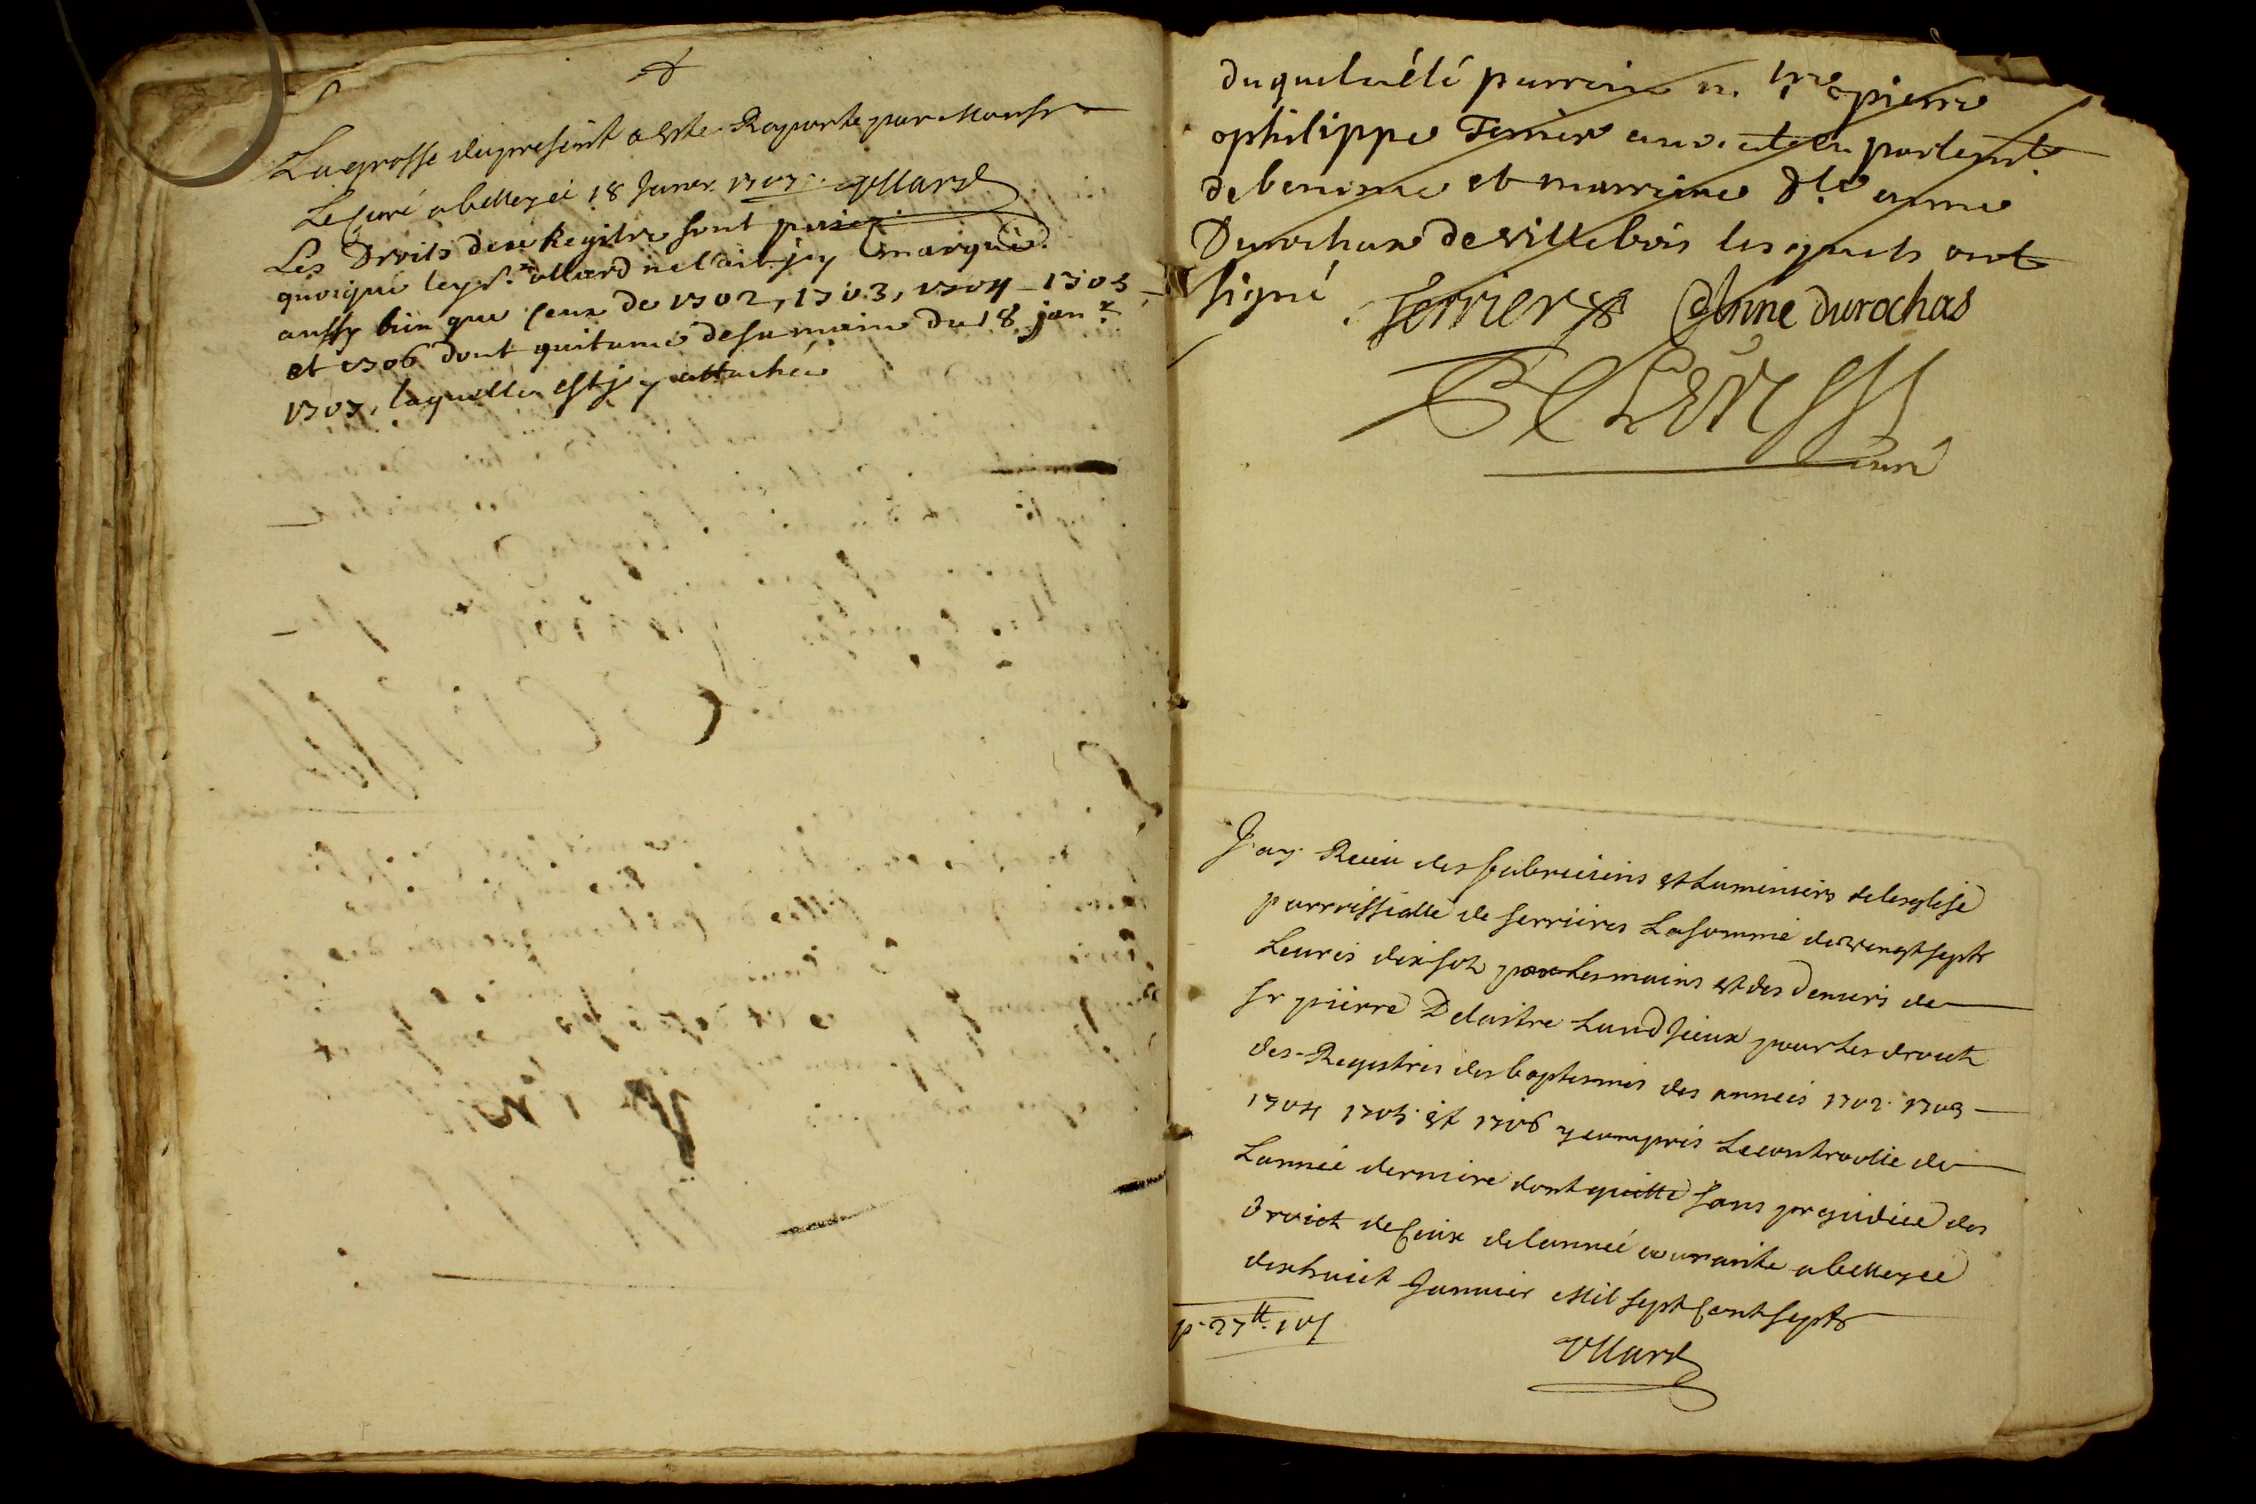 La grosse du present a este Raporté par Monsr
Le Curé a belley cé 18 Janvr. 1707. Ullard
Les Droits de ce Registre sont payez
quoique led. Sr. ullard ne l'ait icy marqué
aussy bien que ceux de 1702, 1703, 1704 _ 1705 _
et 1706 dont quitance de sa main du 18 janr.
1707, laquelle est icy attachée
duquel a été parrain m. pierre
philippe Terrier parlement
et marraine Dlle. anne
Durochas de villebois lesquels ont
signé. Terrier Anne durochas
curé
J'ay Receu des fabriciens et Luminiers de leglise
parroissialle de serrieres La somme de vingt sept
Leures dix sols par les mains et des deniers de
sr pierre Delaitre pour les droicts
des Registres des baptesmes des années 1702. 1703
1704 1705. et 1706 y compris Le controolle de
Lannée derniere dont quitte sans prejudice des
droict de Ceux de lannée courante a belley cé
dixhuict Janvier Mil sept Cent sept
p. 27 tt. 10 s
Ullard